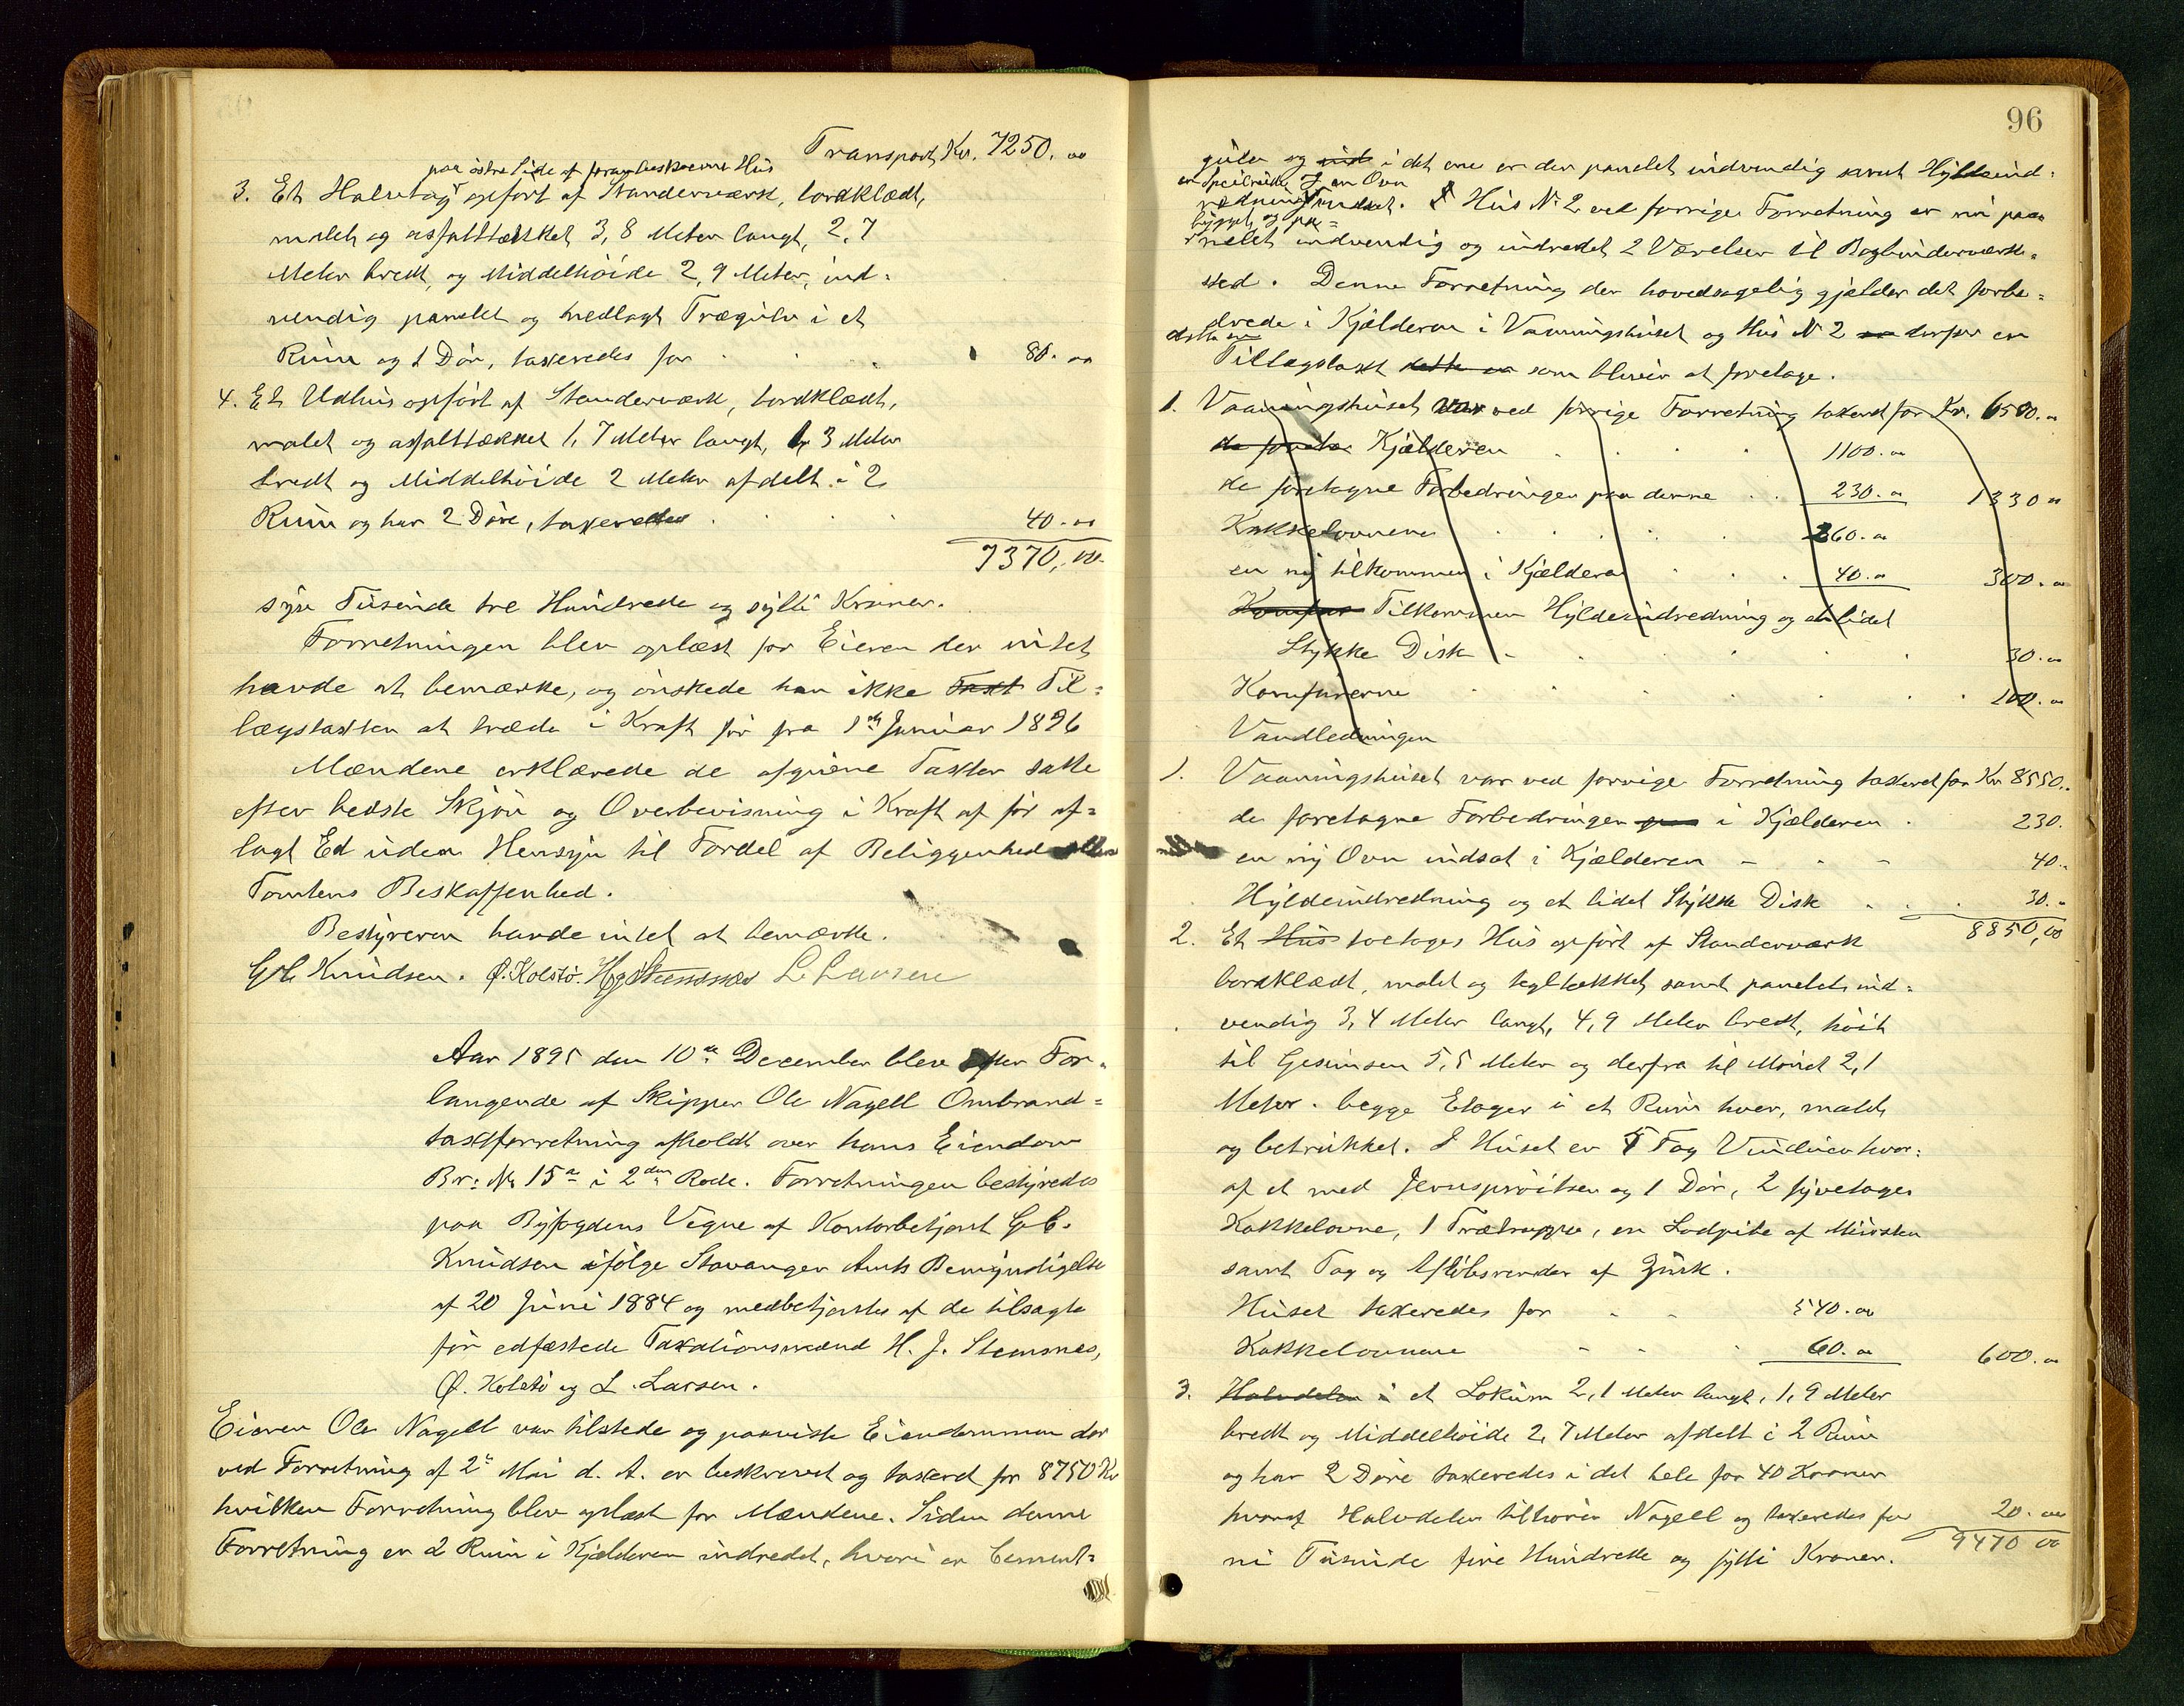 Transport Kr. 7250. 00
paa östre Side af foranbeskrevne Hus
3. Et Halvetag opfört af Standerværk, bordklædt,
malet og asfalttækket 3,8 Meter langt, 2,7
Meter bredt, og Middelhöide 2,9 Meter, ind-
vendig panelet og nedlagt Trægulv i et
Rum og 1 Dör, taxeredes for 80. 00
4. Et Udhus opfört af Standerværk, bordklædt,
malet og asfalttækket 1,7 Meter langt, 1,3 Meter
bredt og Middelhöide 2 Meter afdelt i 2
Rum og har 2 Döre, taxeredes 40. 00
7370,00.
syv Tusinde tre Hundrede og sytti Kroner.
Forretningen blev oplæst for Eieren der intet
havde at bemærke, og önskede han ikke Taxt Til-
lægstaxten at træde i Kraft för fra 1ste Januar 1896
Mændene erklærede de afgivne Taxter satte
efter bedste Skjön og Overbevisning i Kraft af för af-
lagt Ed uden Hensyn til Fordel af Beliggenhed eller
Tomtens Beskaffenhed.
Bestyreren havde intet at bemærke.
G. C. Knudsen. Ø. Kolstö. H J Stemsnes L. Larsen
Aar 1895 den 10de December blev efter For-
langende af Skipper Ole Nagell Ombrand-
taxtforretning afholdt over hans Eiendom
Br: No 15a i 2den Rode. Forretningen bestyredes
paa Byfogdens Vegne af Kontorbetjent G. C.
Knudsen ifölge Stavanger Amts Bemyndigelse
af 20 Juni 1884 og medbetjentes af de tilsagte
för edfæstede Taxationsmænd H. J. Stemsnes,
Ø. Kolstö og L. Larsen.
Eieren Ole Nagell var tilstede og paaviste Eiendommen der
ved Forretning af 2de Mai d. A. er beskrevet og taxeret for 8750 Kr
hvilken Forretning blev oplæst for Mændene. Siden denne
Forretning er 2 Rum i Kjælderen indredet, hvori er Cement-
96
gulv og inds i det ene er der panelet indvendig samt Hyldeind-
redning Indsat. en Ovn
I Hus No 2 ved forrige Forretning er nu paa-
bygget, og pa-
nelet indvendig og indredet 2 Værelser til Bogbinderværk-
sted. Denne Forretning der hovedsagelig gjælder det forbe-
drede i Kjælderen i Vaaningshuset og Hus No 2 er derfor en
dette er
Tillægstaxt dette er som bliver at foretage.
1. Vaaningshuset var ved forrige Forretning taxeret for Kr. 6500. 00
de foretar Kjælderen 1100. 00
de foretagne Forbedringer paa denne 230. 00 1330 00
Kakkelovnene 260. 00
en ny tilkommen i Kjælderen 40. 00 300. 00
Komfur Tilkommen Hyldeindredning og et lidet
Stykke Disk 30. 00
Komfurerne 100. 00
Vandledningen
1. Vaaningshuset var ved forrige Forretning taxeret for Kr 8550.
de foretagne Forbedringer paa i Kjælderen 230.
en ny Ovn indsat i Kjælderen 40.
Hyldeindredning og et lidet Stykke Disk 30.
8850,00
2. Et Hus toetages Hus opfört af Standerværk
bordklædt, malet og tegltækket, samt panelet ind-
vendig 3,4 Meter langt, 4,9 Meter bredt, höit
til Gesimsen 5,5 Meter og derfra til Mönet 2,1
Meter. begge Etager i et Rum hver, malet
og betrukket. I Huset er 5 Fag Vinduer hvor-
af et med Jernsprösser og 1 Dör, 2 fyretages
Kakkelovne, 1 Trætrappe, en Lodpibe af Mursten
samt Tag og Aflöbsrender af Zink.
Huset taxeredes for 540. 00
Kakkelovnene 60. 00 600. 00
3. Halvdelen i et Lokum 2,1 Meter langt, 1,9 Meter
bredt og Middelhöide 2,7 Meter afdelt i 2 Rum
og har 2 Döre taxeredes i det hele for 40 Kroner
hvoraf Halvdelen tilhörer Nagell og taxeredes for 20. 00
9470 00
ni Tusinde fire Hundrede og sytti Kroner.